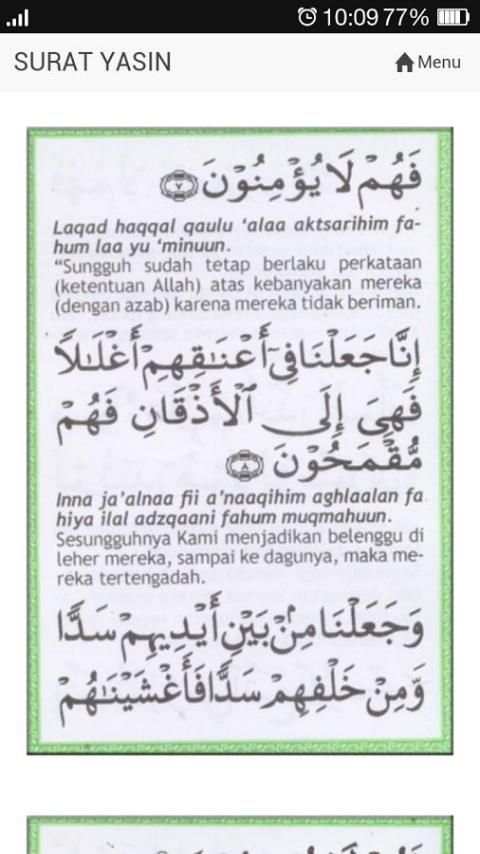 10:09 77%
SURAT YASIN
Menu
فَهُمْ لَا يُؤْمِنُوْنَ ٧
Laqad haqqal qaulu ‘alaa aktsarihim fa-
hum laa yu ‘minuun.
“Sungguh sudah tetap berlaku perkataan
(ketentuan Allah) atas kebanyakan mereka
(dengan azab) karena mereka tidak beriman.
إِنَّا جَعَلْنَا فِيٓ أَعْنَاقِهِمْ أَغْلَالًا
فَهِيَ إِلَى الْأَذْقَانِ فَهُمْ
مُّقْمَحُوْنَ ٨
Inna ja’alnaa fii a’naaqihim aghlaalan fa
hiya ilal adzqaani fahum muqmahuun.
Sesungguhnya Kami menjadikan belenggu di
leher mereka, sampai ke dagunya, maka me-
reka tertengadah.
وَجَعَلْنَا مِنْۢ بَيْنِ أَيْدِيهِمْ سَدًّا
وَّمِنْ خَلْفِهِمْ سَدًّا فَأَغْشَيْنَاهُمْ